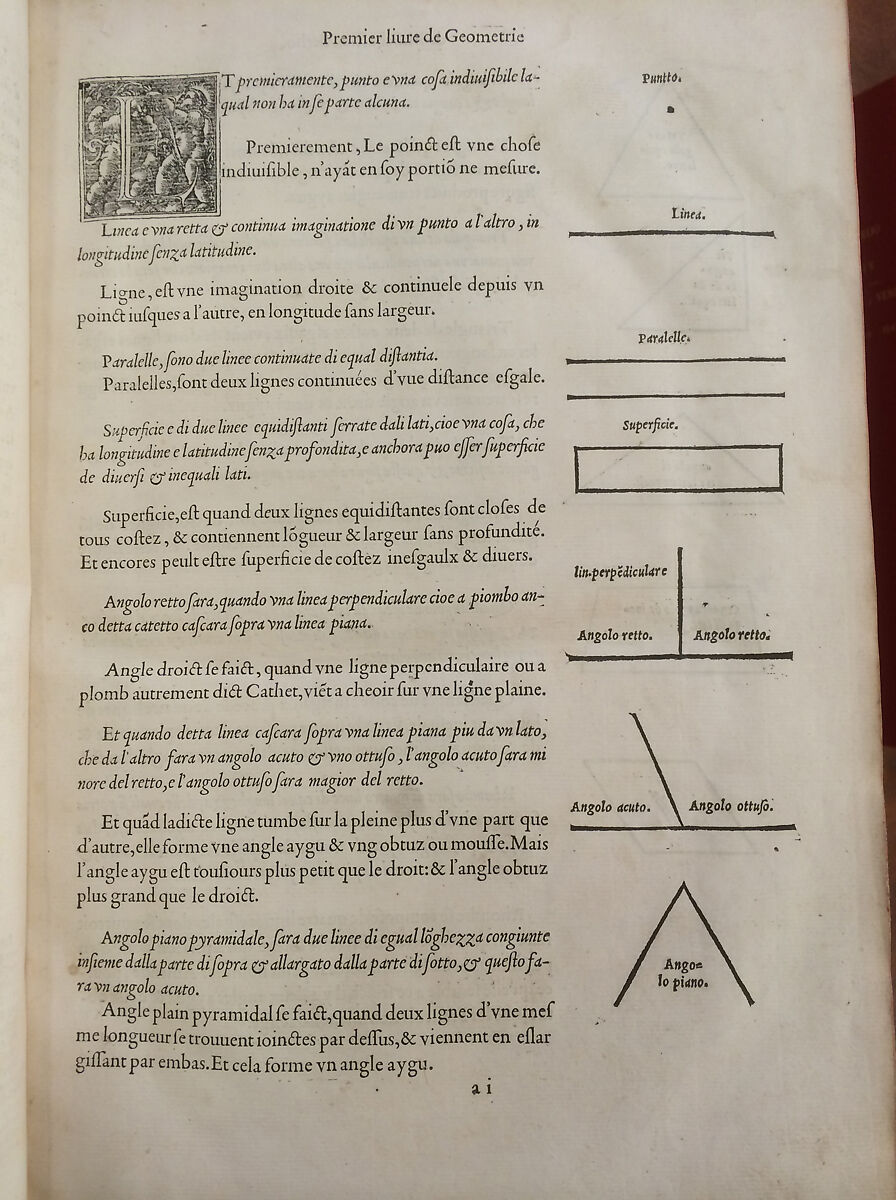 Premier liure de Geometrie
ET premieramente, punto e vna cosa indiuisibile la-
qual non ha in se parte alcuna.
Premierement, Le poinct est vne chose
indiuisible, n'ayāt en soy portiō ne mesure.
Linea e vna retta & continua imaginatione di vn punto a l'altro, in
longitudine senza latitudine.
Ligne, est vne imagination droite & continuele depuis vn
poinct iusques a l'autre, en longitude sans largeur.
Paralelle, sono due linee continuate di equal distantia.
Paralelles, sont deux lignes continuées d'vue distance esgale.
Superficie e di due linee equidistanti serrate dali lati, cioe vna cosa, che
ha longitudine e latitudine senza profondita, e anchora puo esser superficie
de diuersi & inequali lati.
Superficie, est quand deux lignes equidistantes sont closes de
tous costez, & contiennent lōgueur & largeur sans profundité.
Et encores peult estre superficie de costez inesgaulx & diuers.
Angolo retto sara, quando vna linea perpendiculare cioe a piombo an-
co detta catetto cascara sopra vna linea piana.
Angle droict se faict, quand vne ligne perpendiculaire ou a
plomb autrement dict Cathet, viēt a cheoir sur vne ligne plaine.
Et quando detta linea cascara sopra vna linea piana piu da vn lato,
che da l'altro fara vn angolo acuto & vno ottuso, l'angolo acuto sara mi
nore del retto, e l'angolo ottuso sara magior del retto.
Et quād ladicte ligne tumbe sur la pleine plus d'vne part que
d'autre, elle forme vne angle aygu & vng obtuz ou mousse. Mais
l'angle aygu est tousiours plus petit que le droit: & l'angle obtuz
plus grand que le droict.
Angolo piano pyramidale, sara due linee di egual lōghezza congiunte
insieme dalla parte di sopra & allargato dalla parte di sotto, & questo fa-
ra vn angolo acuto.
Angle plain pyramidal se faict, quand deux lignes d'vne mes
me longueur se trouuent ioinctes par dessus, & viennent en eslar
gissant par embas. Et cela forme vn angle aygu.
a i
Puntto.
Linea.
Paralelle.
Superficie.
lin. perpēdiculare
Angolo retto. Angolo retto.
Angolo acuto. Angolo ottuso.
Ango=
lo piano.